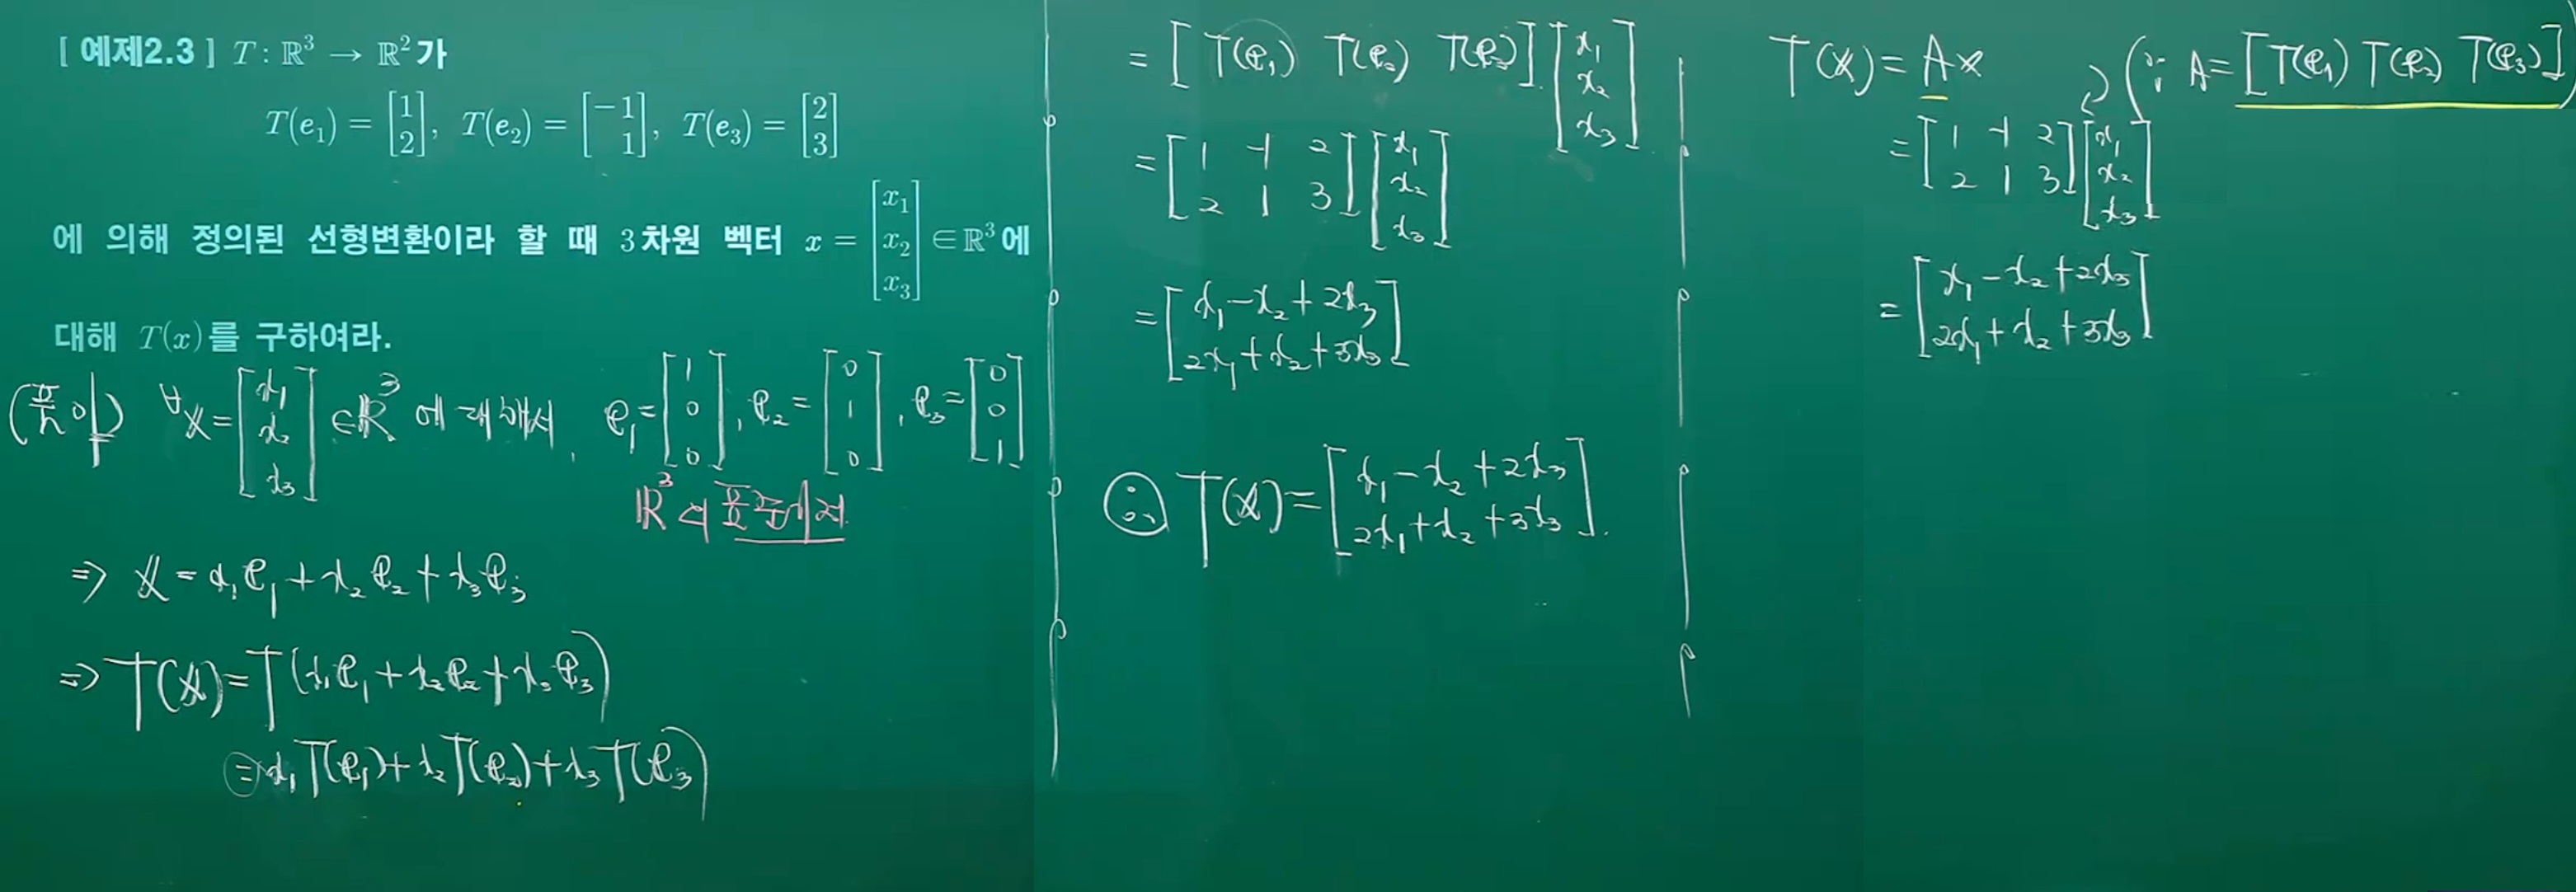 [ 예제2.3 ] T : ℝ³ → ℝ²가
T(e₁) = [1; 2], T(e₂) = [-1; 1], T(e₃) = [2; 3]
에 의해 정의된 선형변환이라 할 때 3차원 벡터 x = [x₁; x₂; x₃] ∈ ℝ³에
대해 T(x)를 구하여라.
(풀이) ∀x = [x₁; x₂; x₃] ∈ ℝ³ 에 대해서, e₁ = [1; 0; 0], e₂ = [0; 1; 0], e₃ = [0; 0; 1]
ℝ³의 표준기저
⇒ x = x₁e₁ + x₂e₂ + x₃e₃
⇒ T(x) = T(x₁e₁ + x₂e₂ + x₃e₃)
= x₁T(e₁) + x₂T(e₂) + x₃T(e₃)
= [T(e₁) T(e₂) T(e₃)] [x₁; x₂; x₃]
= [1 -1 2; 2 1 3] [x₁; x₂; x₃]
= [x₁ - x₂ + 2x₃; 2x₁ + x₂ + 3x₃]
∴ T(x) = [x₁ - x₂ + 2x₃; 2x₁ + x₂ + 3x₃].
T(x) = Ax (∵ A = [T(e₁) T(e₂) T(e₃)])
= [1 -1 2; 2 1 3] [x₁; x₂; x₃]
= [x₁ - x₂ + 2x₃; 2x₁ + x₂ + 3x₃]